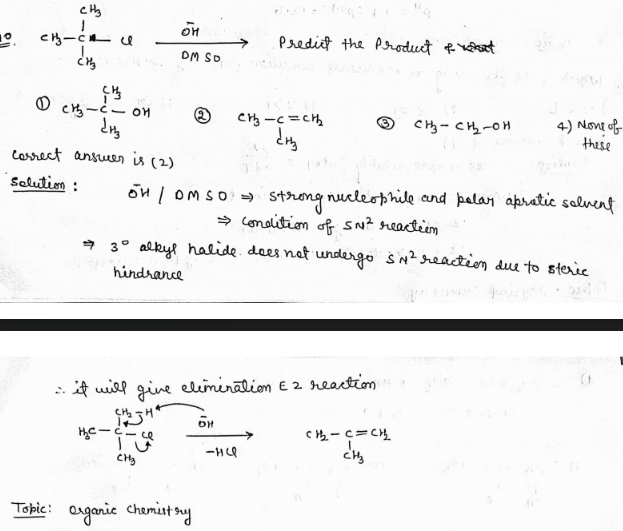 CH3
CH3-C-Cl
CH3
ŌH
DMSO
Predict the Product &
① CH3-C-OH
CH3
CH3
② CH3-C=CH2
CH3
③ CH3-CH2-OH
4) None of these
Correct answer is (2)
Solution :
ŌH / DMSO ⇒ strong nucleophile and polar aprotic solvent
⇒ condition of SN² reaction
⇒ 3° alkyl halide does not undergo SN² reaction due to steric
hindrance
∴ it will give elimination E2 reaction
CH2-H
H3C-C-Cl
CH3
ŌH
-HCl
CH2-C=CH2
CH3
Topic: organic chemistry